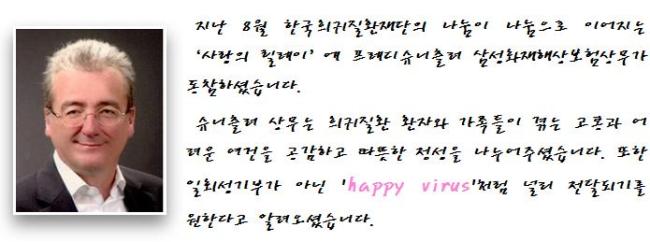 지난 8월 한국희귀질환재단의 나눔이 나눔으로 이어지는
'사랑의 릴레이' 에 프레디슈니츨러 삼성화재해상보험상무가
동참하셨습니다.
슈니츨러 상무는 희귀질환 환자와 가족들이 겪는 고통과 어
려운 여건을 공감하고 따뜻한 정성을 나누어주셨습니다. 또한
일회성기부가 아닌 'happy virus'처럼 널리 전달되기를
원한다고 알려오셨습니다.